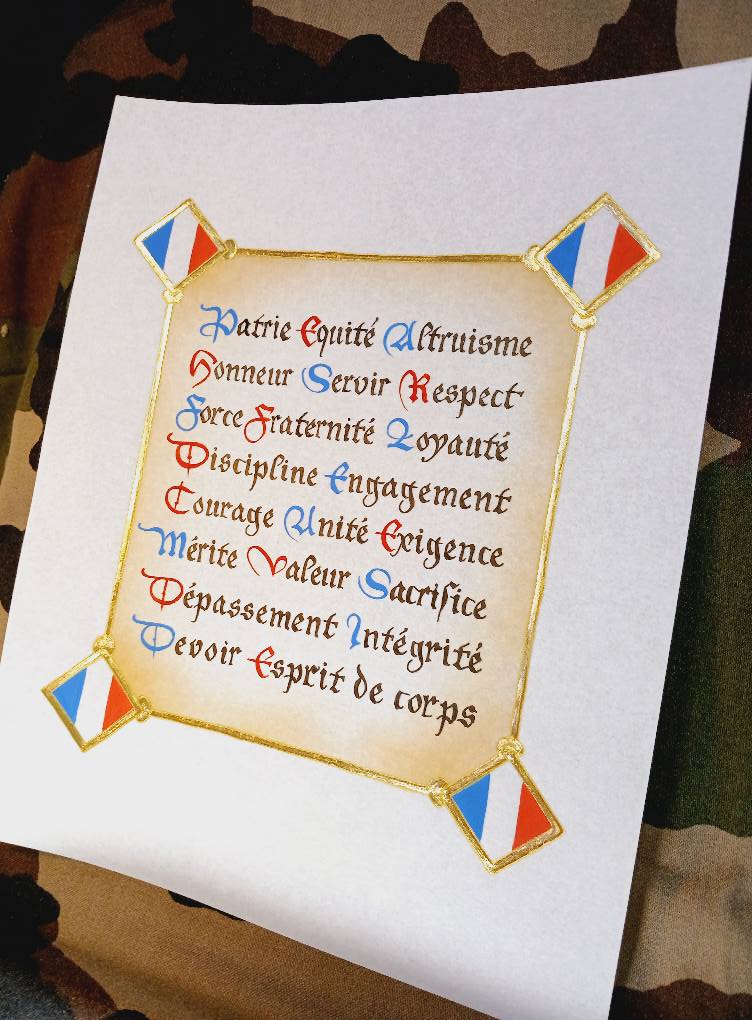 Patrie Equité Altruisme
Honneur Servir Respect
Force Fraternité Loyauté
Discipline Engagement
Courage Unité Exigence
Mérite Valeur Sacrifice
Dépassement Intégrité
Devoir Esprit de corps